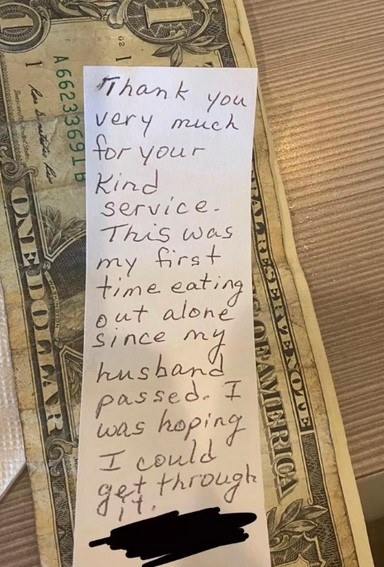 1
1
02
1
A 6623369 1
ONE DOLLAR
RESERVE NOTE
OF AMERICA
Thank you
very much
for your
kind
service.
This was
my first
time eating
out alone
since my
husband
passed. I
was hoping
I could
get through
it.